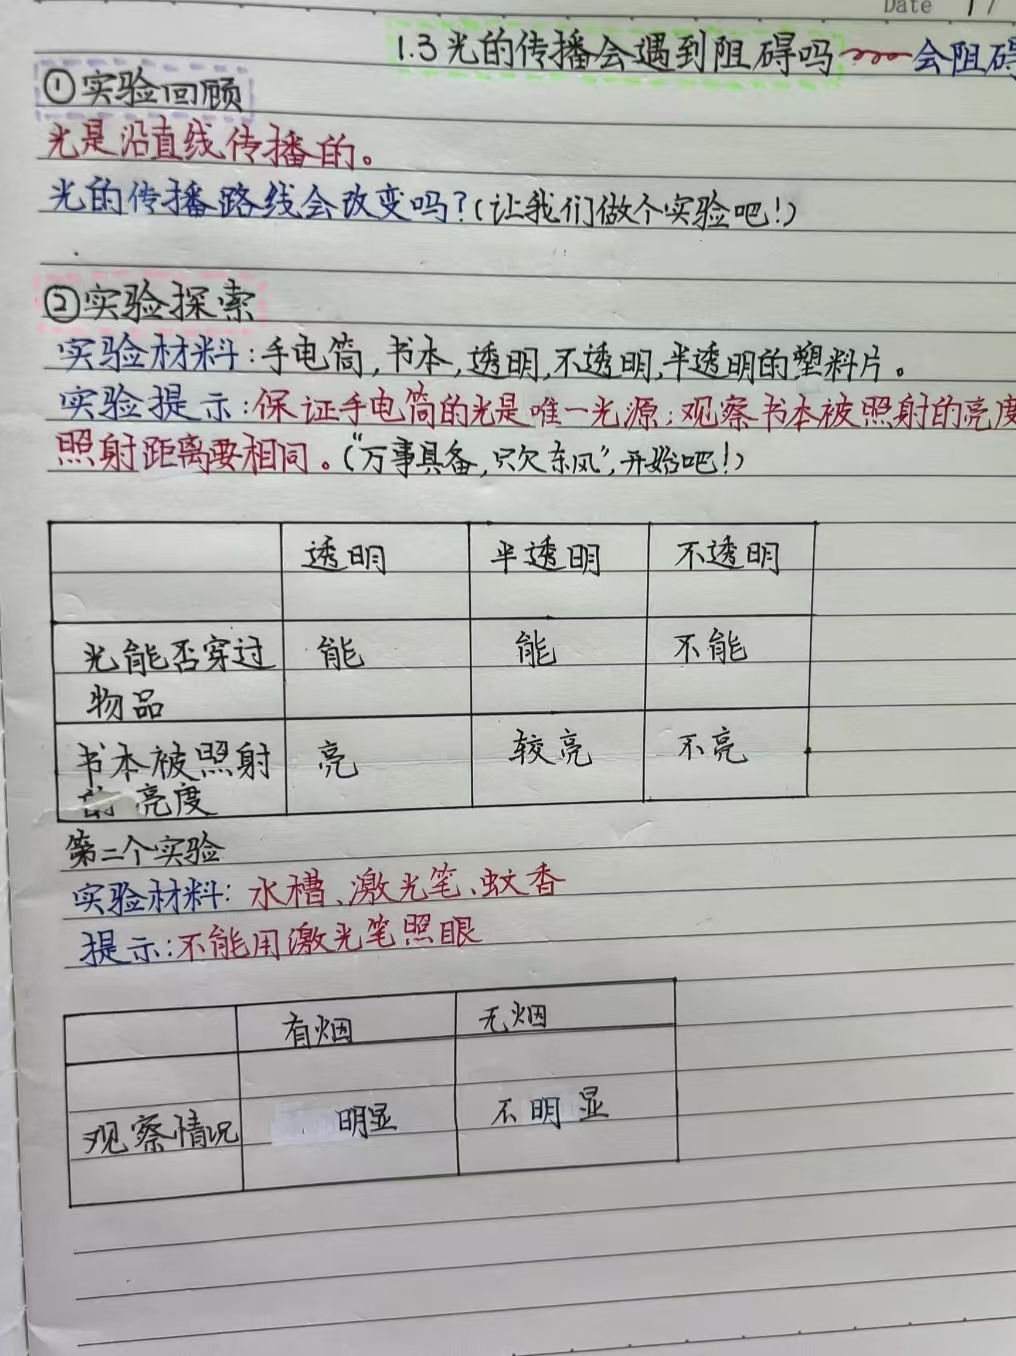 Date 1/
1.3光的传播会遇到阻碍吗 会阻碍
①实验回顾
光是沿直线传播的。
光的传播路线会改变吗?(让我们做个实验吧!)
②实验探索
实验材料:手电筒,书本,透明,不透明,半透明的塑料片。
实验提示:保证手电筒的光是唯一光源;观察书本被照射的亮度
照射距离要相同。(“万事具备,只欠东风”,开始吧!)
透明 半透明 不透明
光能否穿过 能 能 不能
物品
书本被照射 亮 较亮 不亮
的亮度
第二个实验
实验材料:水槽、激光笔、蚊香
提示:不能用激光笔照眼
有烟 无烟
观察情况 明显 不明显